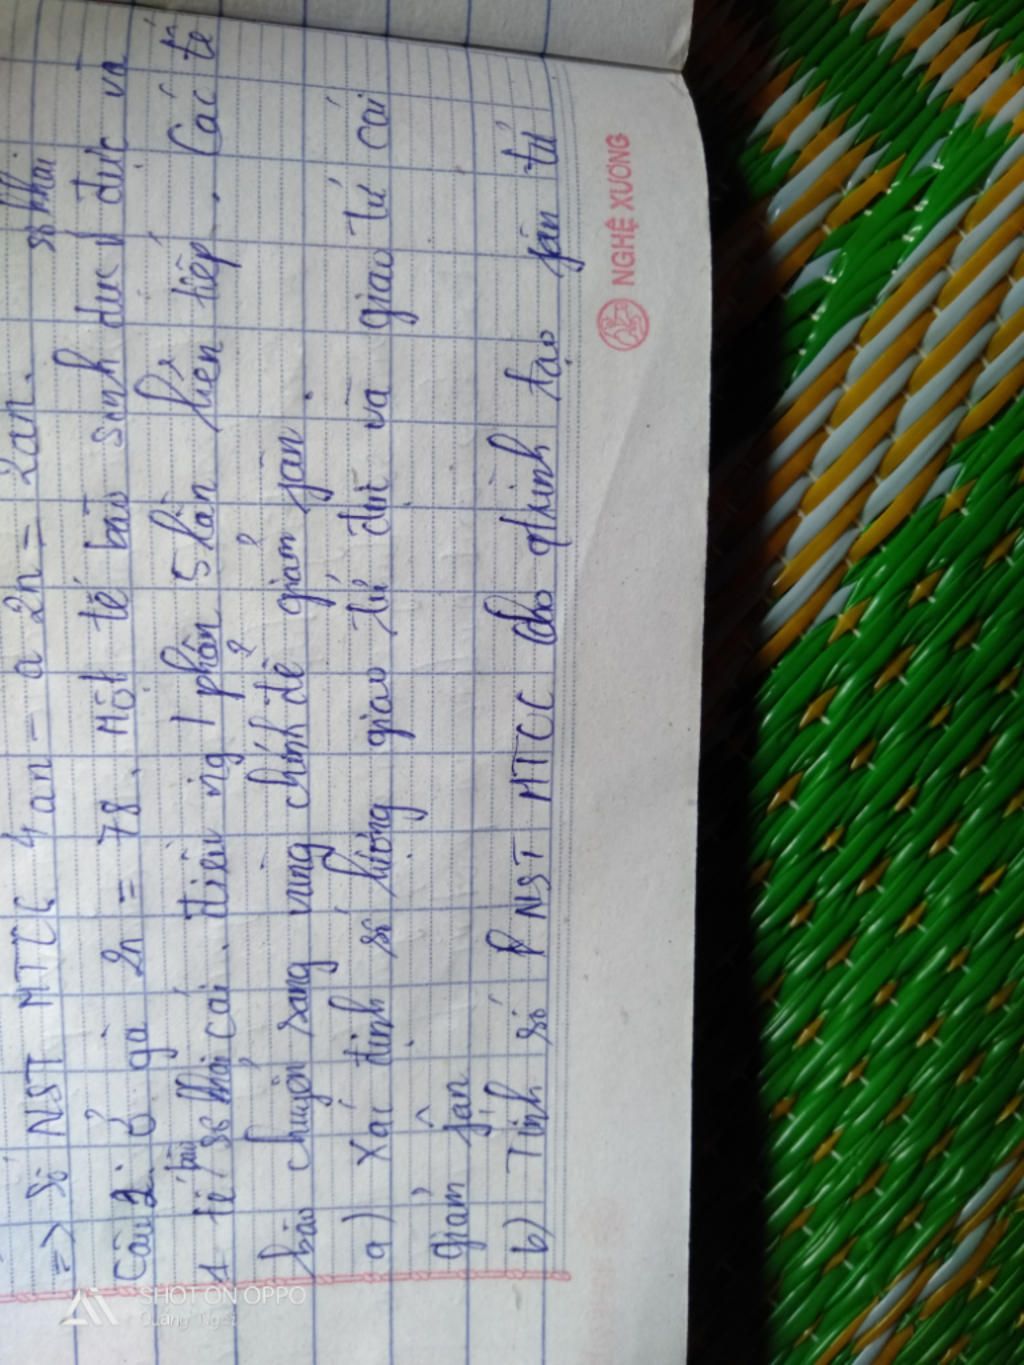 => Số NST MTCC 4an - a2n = 2an.
sơ khai
Câu 2: Ở gà 2n = 78. Một tế bào sinh dục đực và
bào
1 tế sơ khai cái. đều ng phân 5 lần liên tiếp. Các tế
bào chuyển sang vùng chính để giảm fân
a) Xác định số lượng giao tử đực và giao tử cái
giảm fân
b) Tính số NST MTCC cho qtrình tạo fân tử
NGHỆ XUÔNG
SHOT ON OPPO
Quang Ngọt